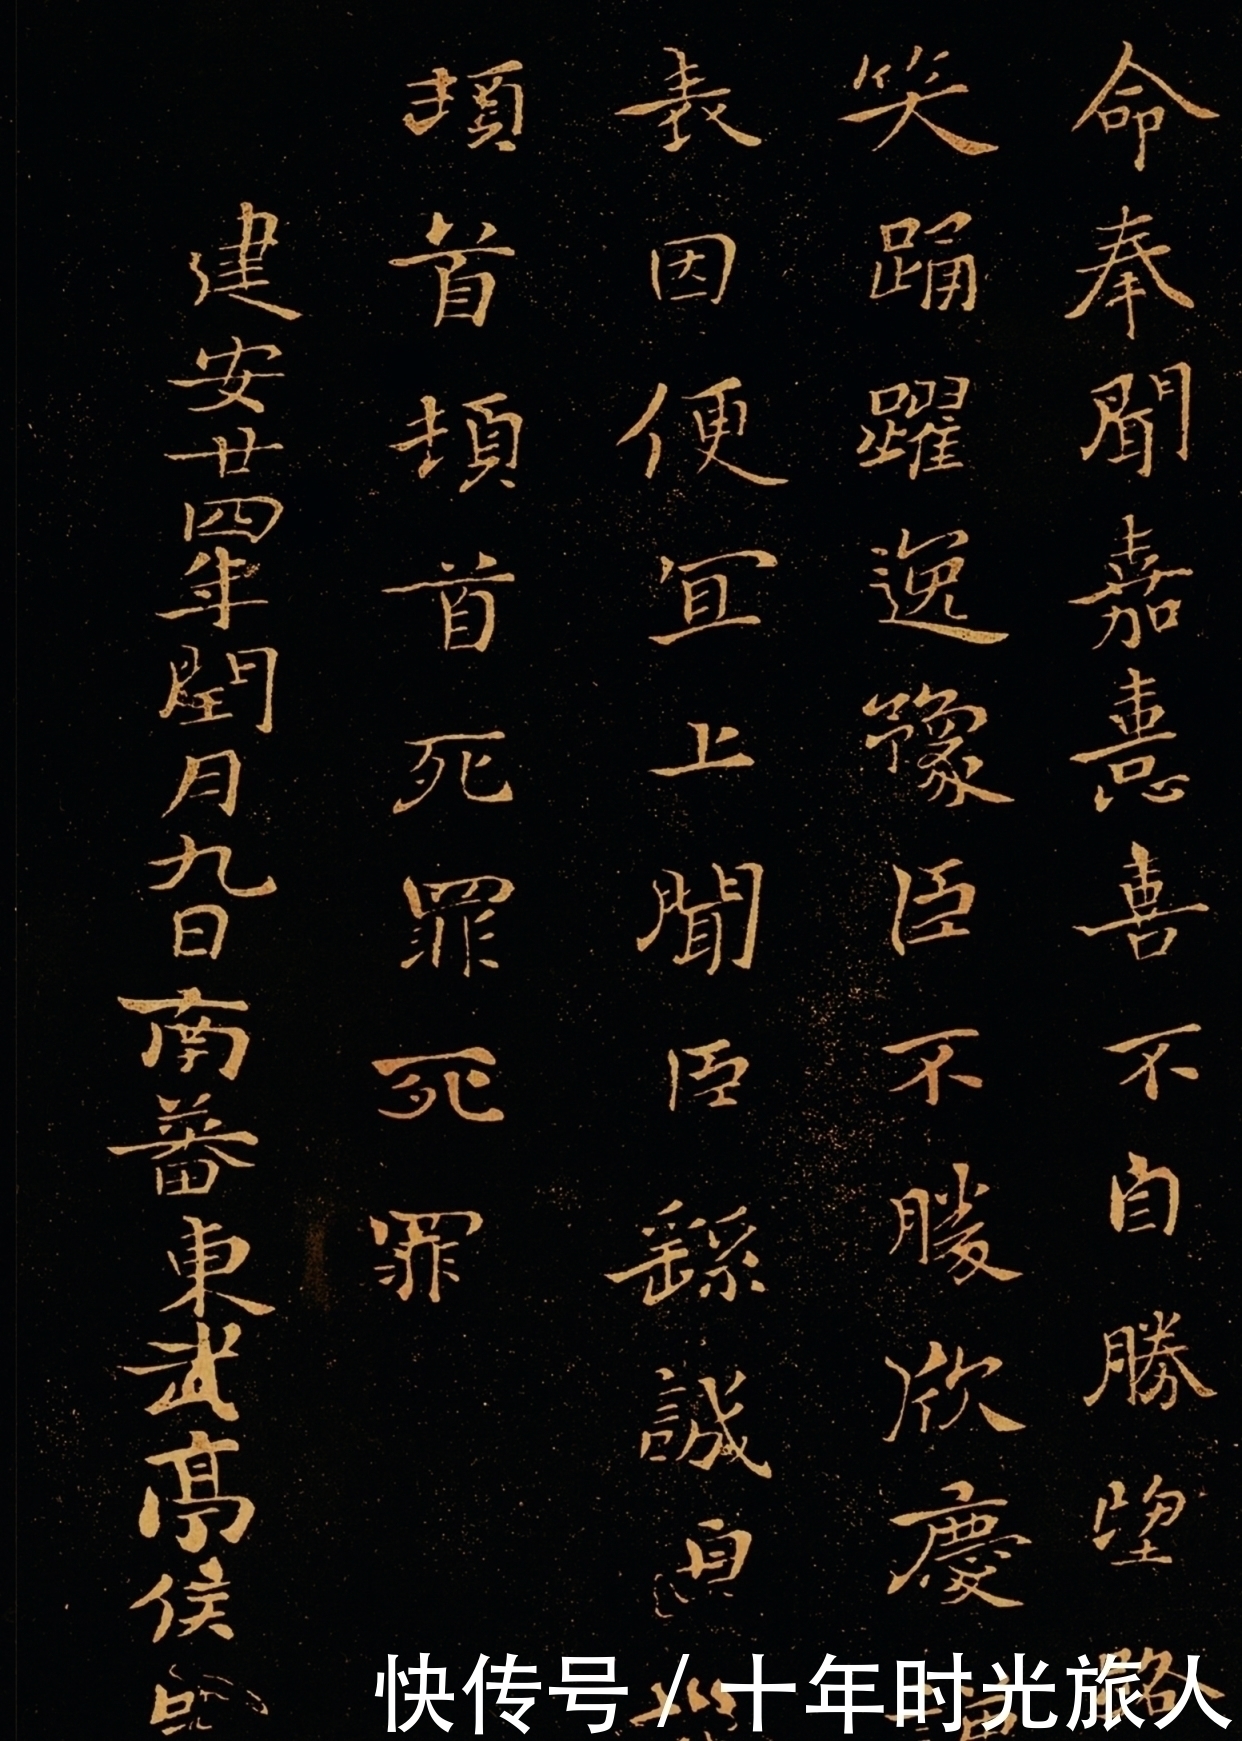 命奉聞嘉憙喜不自勝望路
笑踊躍逸豫臣不勝欣慶
表因便宜上聞臣繇誠
頓首頓首死罪死罪
建安廿四年閏月九日南蕃東武亭侯
快传号 / 十年时光旅人